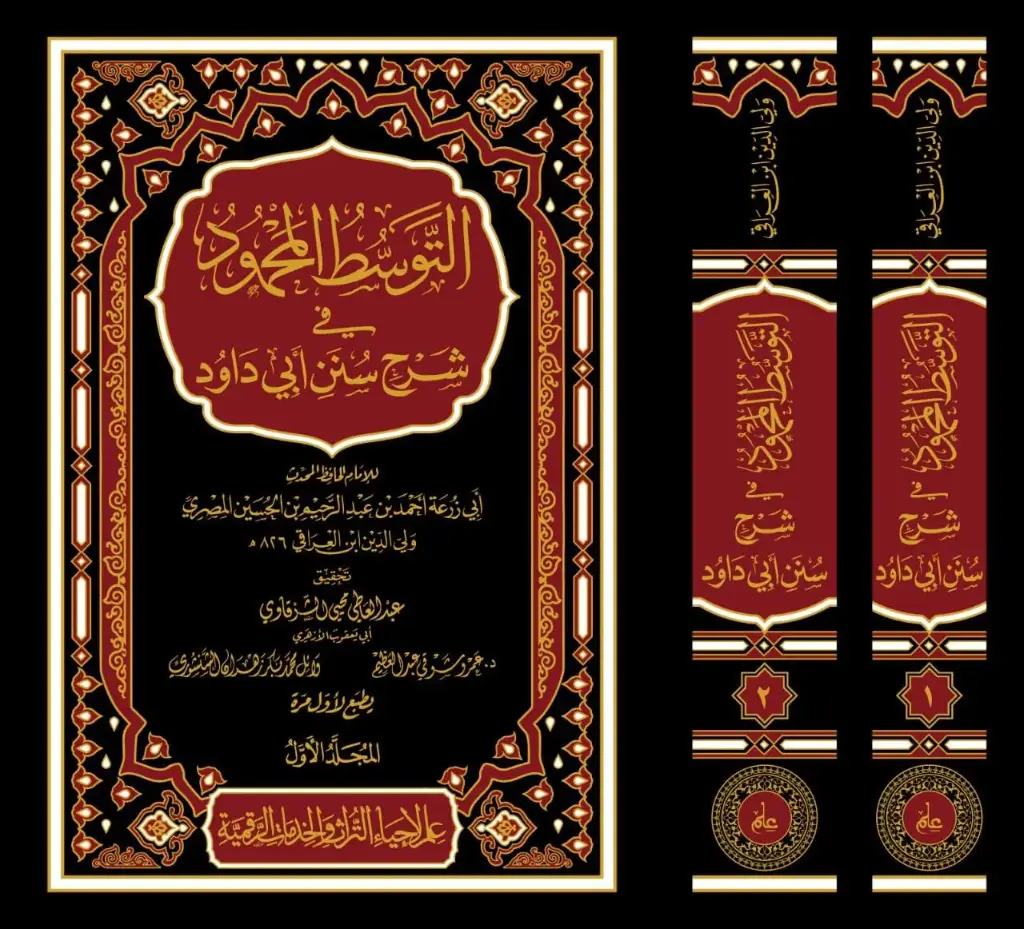 التَّوَسُّطُ المَحْمُودُ
في
شَرْحِ سُنَنِ أَبِي دَاوُد
للإمام الحافظ المحدث
أبي زُرْعَة أحْمَد بن عَبْد الرَّحِيم بن الحُسَيْن المِصْري
وَلي الدّين ابن العِرَاقي ٨٢٦ هـ
تَحْقِيق
عبد العاطي محيي الشرقاوي
أبي يعقوب الأزهري
د. عمرو شرقي عبد العظيم    وائل محمد بكر زهران الشنشوري
يطبع لأوّل مرّة
المُجَلَّدُ الأَوَّلُ
علم لإحياء التراث والخدمات الرقمية
ولي الدين ابن العراقي
التَّوَسُّطُ المَحْمُودُ
في
شَرْحِ
سُنَنِ أَبِي دَاوُد
٢
علم
ولي الدين ابن العراقي
التَّوَسُّطُ المَحْمُودُ
في
شَرْحِ
سُنَنِ أَبِي دَاوُد
١
علم